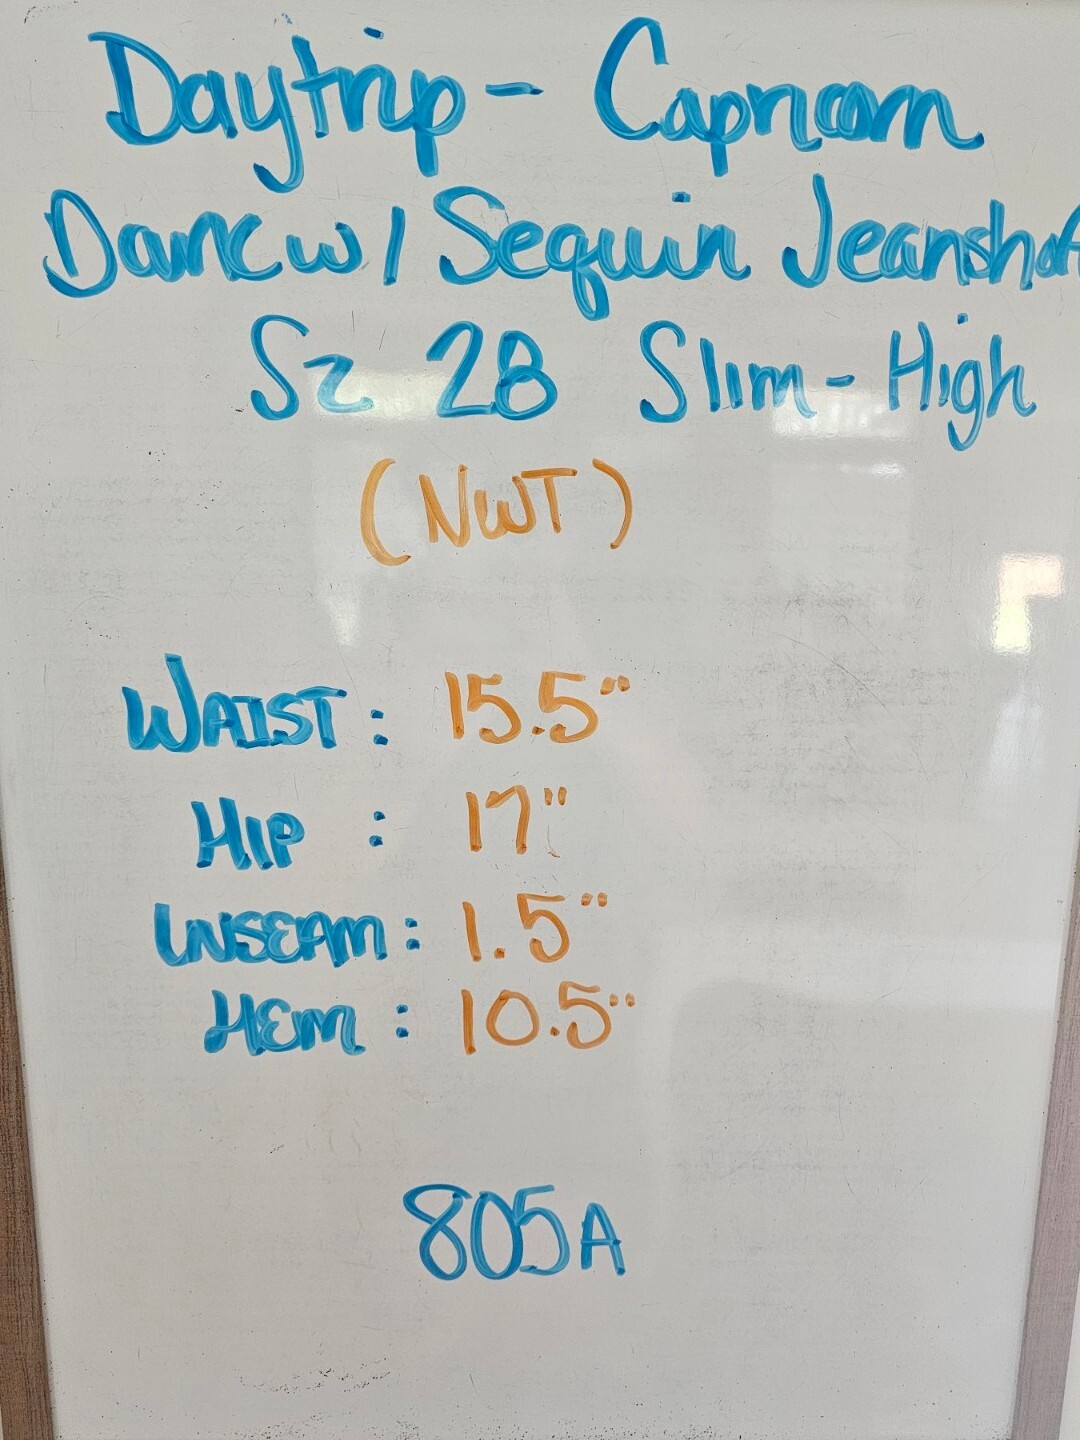 Daytrip - Capricorn
Dark w/ Sequin Jeanshort
Sz 28 Slim - High
(NWT)
WAIST: 15.5"
HIP : 17"
INSEAM: 1.5"
HEM: 10.5"
805A